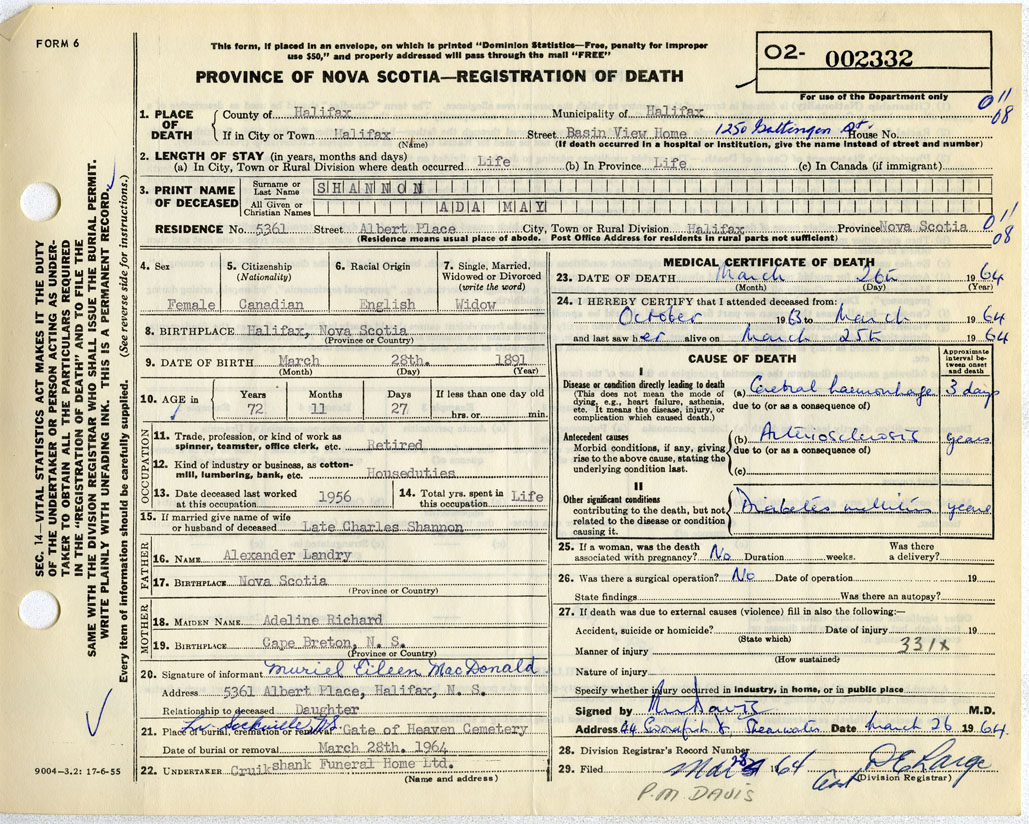 FORM 6
This form, if placed in an envelope, on which is printed "Dominion Statistics—Free, penalty for improper
use $50," and properly addressed will pass through the mail "FREE"
PROVINCE OF NOVA SCOTIA—REGISTRATION OF DEATH
O2- 002332
For use of the Department only
011
08
1. PLACE OF DEATH { County of Halifax Municipality of Halifax
If in City or Town Halifax Street Basin View Home 1250 Gottingen St. House No.
(Name) (If death occurred in a hospital or institution, give the name instead of street and number)
2. LENGTH OF STAY (in years, months and days)
(a) In City, Town or Rural Division where death occurred Life (b) In Province Life (c) In Canada (if immigrant)
3. PRINT NAME OF DECEASED { Surname or Last Name SHANNON
All Given or Christian Names ADA MAY
RESIDENCE No. 5361 Street Albert Place City, Town or Rural Division Halifax Province Nova Scotia
011
08
(Residence means usual place of abode. Post Office Address for residents in rural parts not sufficient)
4. Sex 5. Citizenship (Nationality) 6. Racial Origin 7. Single, Married, Widowed or Divorced (write the word)
Female Canadian English Widow
8. BIRTHPLACE Halifax, Nova Scotia
(Province or Country)
9. DATE OF BIRTH March 28th. 1891
(Month) (Day) (Year)
10. AGE in Years Months Days If less than one day old
72 11 27 hrs. or min.
OCCUPATION
11. Trade, profession, or kind of work as
spinner, teamster, office clerk, etc. Retired
12. Kind of industry or business, as cotton-
mill, lumbering, bank, etc. Houseduties
13. Date deceased last worked at this occupation 1956 14. Total yrs. spent in this occupation Life
15. If married give name of wife
or husband of deceased Late Charles Shannon
FATHER
16. NAME Alexander Landry
17. BIRTHPLACE Nova Scotia
(Province or Country)
MOTHER
18. MAIDEN NAME Adeline Richard
19. BIRTHPLACE Cape Breton, N. S.
(Province or Country)
20. Signature of informant Muriel Eileen MacDonald
Address 5361 Albert Place, Halifax, N. S.
Relationship to deceased Daughter
Lr. Sackville N.S.
21. Place of burial, cremation or removal Gate of Heaven Cemetery
Date of burial or removal March 28th. 1964
22. UNDERTAKER Cruikshank Funeral Home Ltd.
(Name and address)
9004—3.2: 17-6-55
MEDICAL CERTIFICATE OF DEATH
23. DATE OF DEATH March 26th 1964
(Month) (Day) (Year)
24. I HEREBY CERTIFY that I attended deceased from:
October 1963 to March 1964
and last saw her alive on March 25th 1964
CAUSE OF DEATH
Approximate interval between onset and death
I
Disease or condition directly leading to death
(This does not mean the mode of
dying, e.g., heart failure, asthenia,
etc. It means the disease, injury, or
complication which caused death.)
(a) Cerebral haemorrhage 3 days
due to (or as a consequence of)
Antecedent causes
Morbid conditions, if any, giving
rise to the above cause, stating the
underlying condition last.
(b) Arteriosclerosis years
due to (or as a consequence of)
(c)
II
Other significant conditions
contributing to the death, but not
related to the disease or condition
causing it.
Diabetes mellitus years
25. If a woman, was the death Was there
associated with pregnancy? No Duration weeks. a delivery?
26. Was there a surgical operation? No Date of operation 19
State findings Was there an autopsy?
27. If death was due to external causes (violence) fill in also the following:—
Accident, suicide or homicide? Date of injury 19
(State which)
Manner of injury 331x
(How sustained)
Nature of injury
Specify whether injury occurred in industry, in home, or in public place
Signed by P M Davis M.D.
Address 44 St Shearwater Date March 26 1964.
28. Division Registrar's Record Number
29. Filed Mar 28 1964
(Division Registrar)
P.M DAVIS
SEC. 14—VITAL STATISTICS ACT MAKES IT THE DUTY
OF THE UNDERTAKER OR PERSON ACTING AS UNDER-
TAKER TO OBTAIN ALL THE PARTICULARS REQUIRED
IN THE "REGISTRATION OF DEATH" AND TO FILE THE
SAME WITH THE DIVISION REGISTRAR WHO SHALL ISSUE THE BURIAL PERMIT.
WRITE PLAINLY WITH UNFADING INK. THIS IS A PERMANENT RECORD.
Every item of information should be carefully supplied. (See reverse side for instructions.)